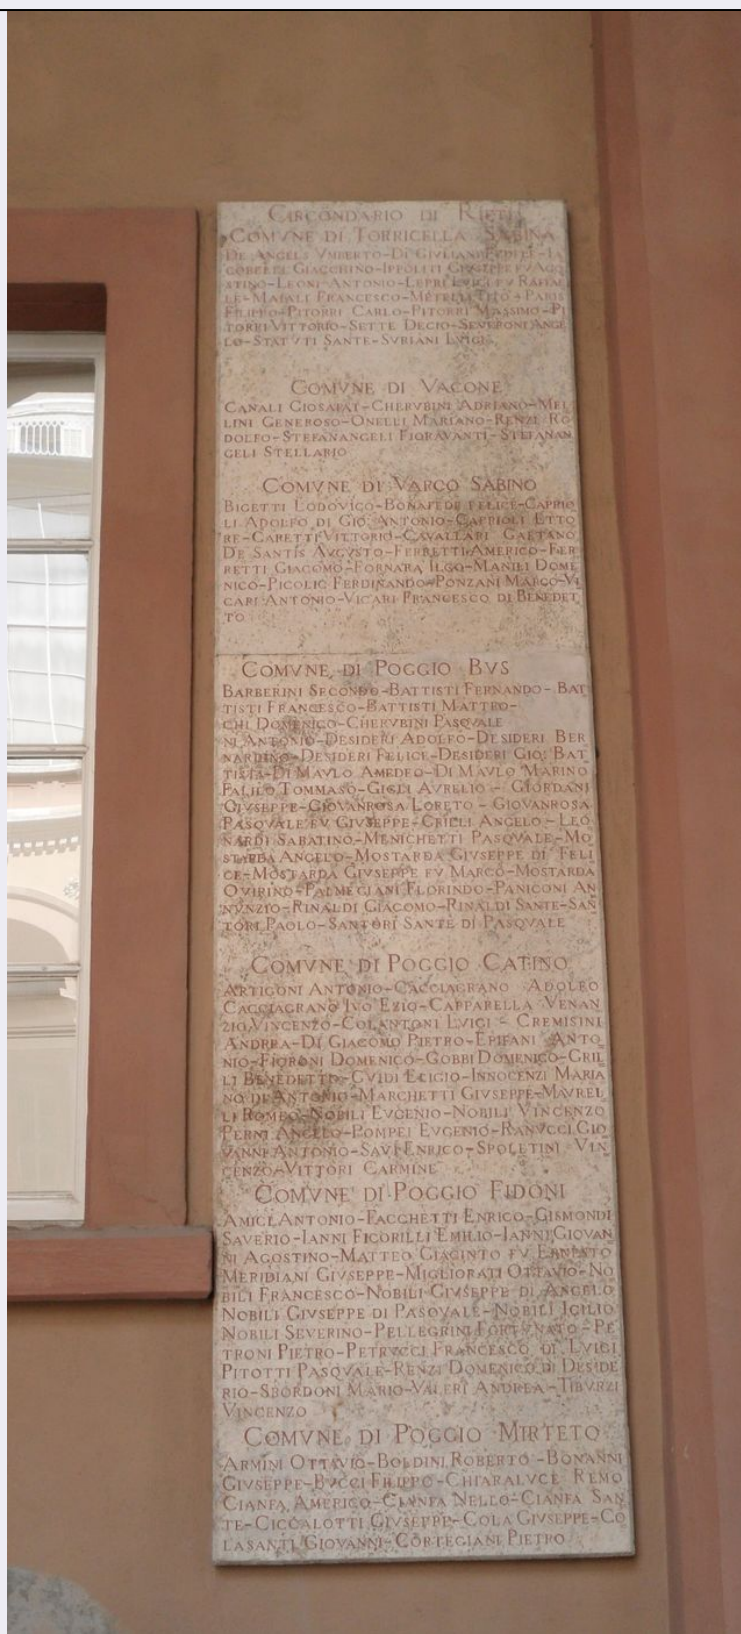 CIRCONDARIO DI RIETI
COMVNE DI TORRICELLA SABINA
DE ANGELS VMBERTO-DI GIVLIANI FEDELE-IA
COBELLI GIACCHINO-IPPOLITI GIVSEPPE FV AGO
STINO-LEONI ANTONIO-LEPRI LVIGI FV RAFFAE
LE-MAIALI FRANCESCO-METELLI TITO-PARIS
FILIPPO-PITORRI CARLO-PITORRI MASSIMO-PI
TORRI VITTORIO-SETTE DECIO-SEVERONI ANGE
LO-STATVTI SANTE-SVRIANI LVIGI
COMVNE DI VACONE
CANALI GIOSAFAT-CHERVBINI ADRIANO-MEL
LINI GENEROSO-ONELLI MARIANO-RENZI RO
DOLFO-STEFANANGELI FIORAVANTI-STEFANAN
GELI STELLARIO
COMVNE DI VARCO SABINO
BIGETTI LODOVICO-BONAFEDE FELICE-CAPRIO
LI ADOLFO DI GIO ANTONIO-CAPRIOLI ETTO
RE-CARETTI VITTORIO-CAVALLARI GAETANO
DE SANTIS AVGVSTO-FERRETTI AMERICO-FER
RETTI GIACOMO-FORNARA ILGO-MANILI DOME
NICO-PICOLIC FERDINANDO-PONZANI MARCO-VI
CARI ANTONIO-VICARI FRANCESCO DI BENEDET
TO
COMVNE DI POGGIO BVS
BARBERINI SECONDO-BATTISTI FERNANDO-BAT
TISTI FRANCESCO-BATTISTI MATTEO-
CHI DOMENICO-CHERVBINI PASQVALE
NI ANTONIO-DESIDERI ADOLFO-DESIDERI BER
NARDINO-DESIDERI FELICE-DESIDERI GIO: BAT
TISTA-DI MAVLO AMEDEO-DI MAVLO MARINO
TOMMASO-GIGLI AVRELIO-GIORDANI
GIVSEPPE-GIOVANROSA LORETO-GIOVANROSA
PASQVALE FV GIVSEPPE-GRILLI ANGELO-LEO
NARDI SABATINO-MENICHETTI PASQVALE-MO
STARDA ANGELO-MOSTARDA GIVSEPPE DI FELI
CE-MOSTARDA GIVSEPPE FV MARCO-MOSTARDA
QVIRINO-PALMEGIANI FLORINDO-PANICONI AN
NVNZIO-RINALDI GIACOMO-RINALDI SANTE-SAN
TORI PAOLO-SANTORI SANTE DI PASQVALE
COMVNE DI POGGIO CATINO
ARTIGONI ANTONIO-CACCIAGRANO ADOLFO
CACCIAGRANO IVO EZIO-CAPPARELLA VENAN
ZIO VINCENZO-COLANTONI LVIGI-CREMISINI
ANDREA-DI GIACOMO PIETRO-EPIFANI ANTO
NIO-FIORONI DOMENICO-GOBBI DOMENICO-GRIL
LI BENEDETTO-GVIDI ELIGIO-INNOCENZI MARIA
NO DI ANTONIO-MARCHETTI GIVSEPPE-MAVREL
LI ROMEO-NOBILI EVGENIO-NOBILI VINCENZO
PERNI ANGELO-POMPEI EVGENIO-RANVCCI GIO
VANNI ANTONIO-SAVI ENRICO-SPOLETINI VIN
CENZO-VITTORI CARMINE
COMVNE DI POGGIO FIDONI
AMICI ANTONIO-FACCHETTI ENRICO-GISMONDI
SAVERIO-IANNI FICORILLI EMILIO-IANNI GIOVAN
NI AGOSTINO-MATTEO GIACINTO FV ERNESTO
MERIDIANI GIVSEPPE-MIGLIORATI OTTAVIO-NO
BILI FRANCESCO-NOBILI GIVSEPPE DI ANGELO
NOBILI GIVSEPPE DI PASQVALE-NOBILI IGILIO
NOBILI SEVERINO-PELLEGRINI FORTVNATO-PE
TRONI PIETRO-PETRVCCI FRANCESCO DI LVIGI
PITOTTI PASQVALE-RENZI DOMENICO DI DESIDE
RIO-SBORDONI MARIO-VALERI ANDREA-TIBVRZI
VINCENZO
COMVNE DI POGGIO MIRTETO
ARMINI OTTAVIO-BOLDINI ROBERTO-BONANNI
GIVSEPPE-BVCCI FILIPPO-CHIARALVCE REMO
CIANFA AMERICO-CIANFA NELLO-CIANFA SAN
TE-CICCALOTTI GIVSEPPE-COLA GIVSEPPE-CO
LASANTI GIOVANNI-CORTEGIANI PIETRO